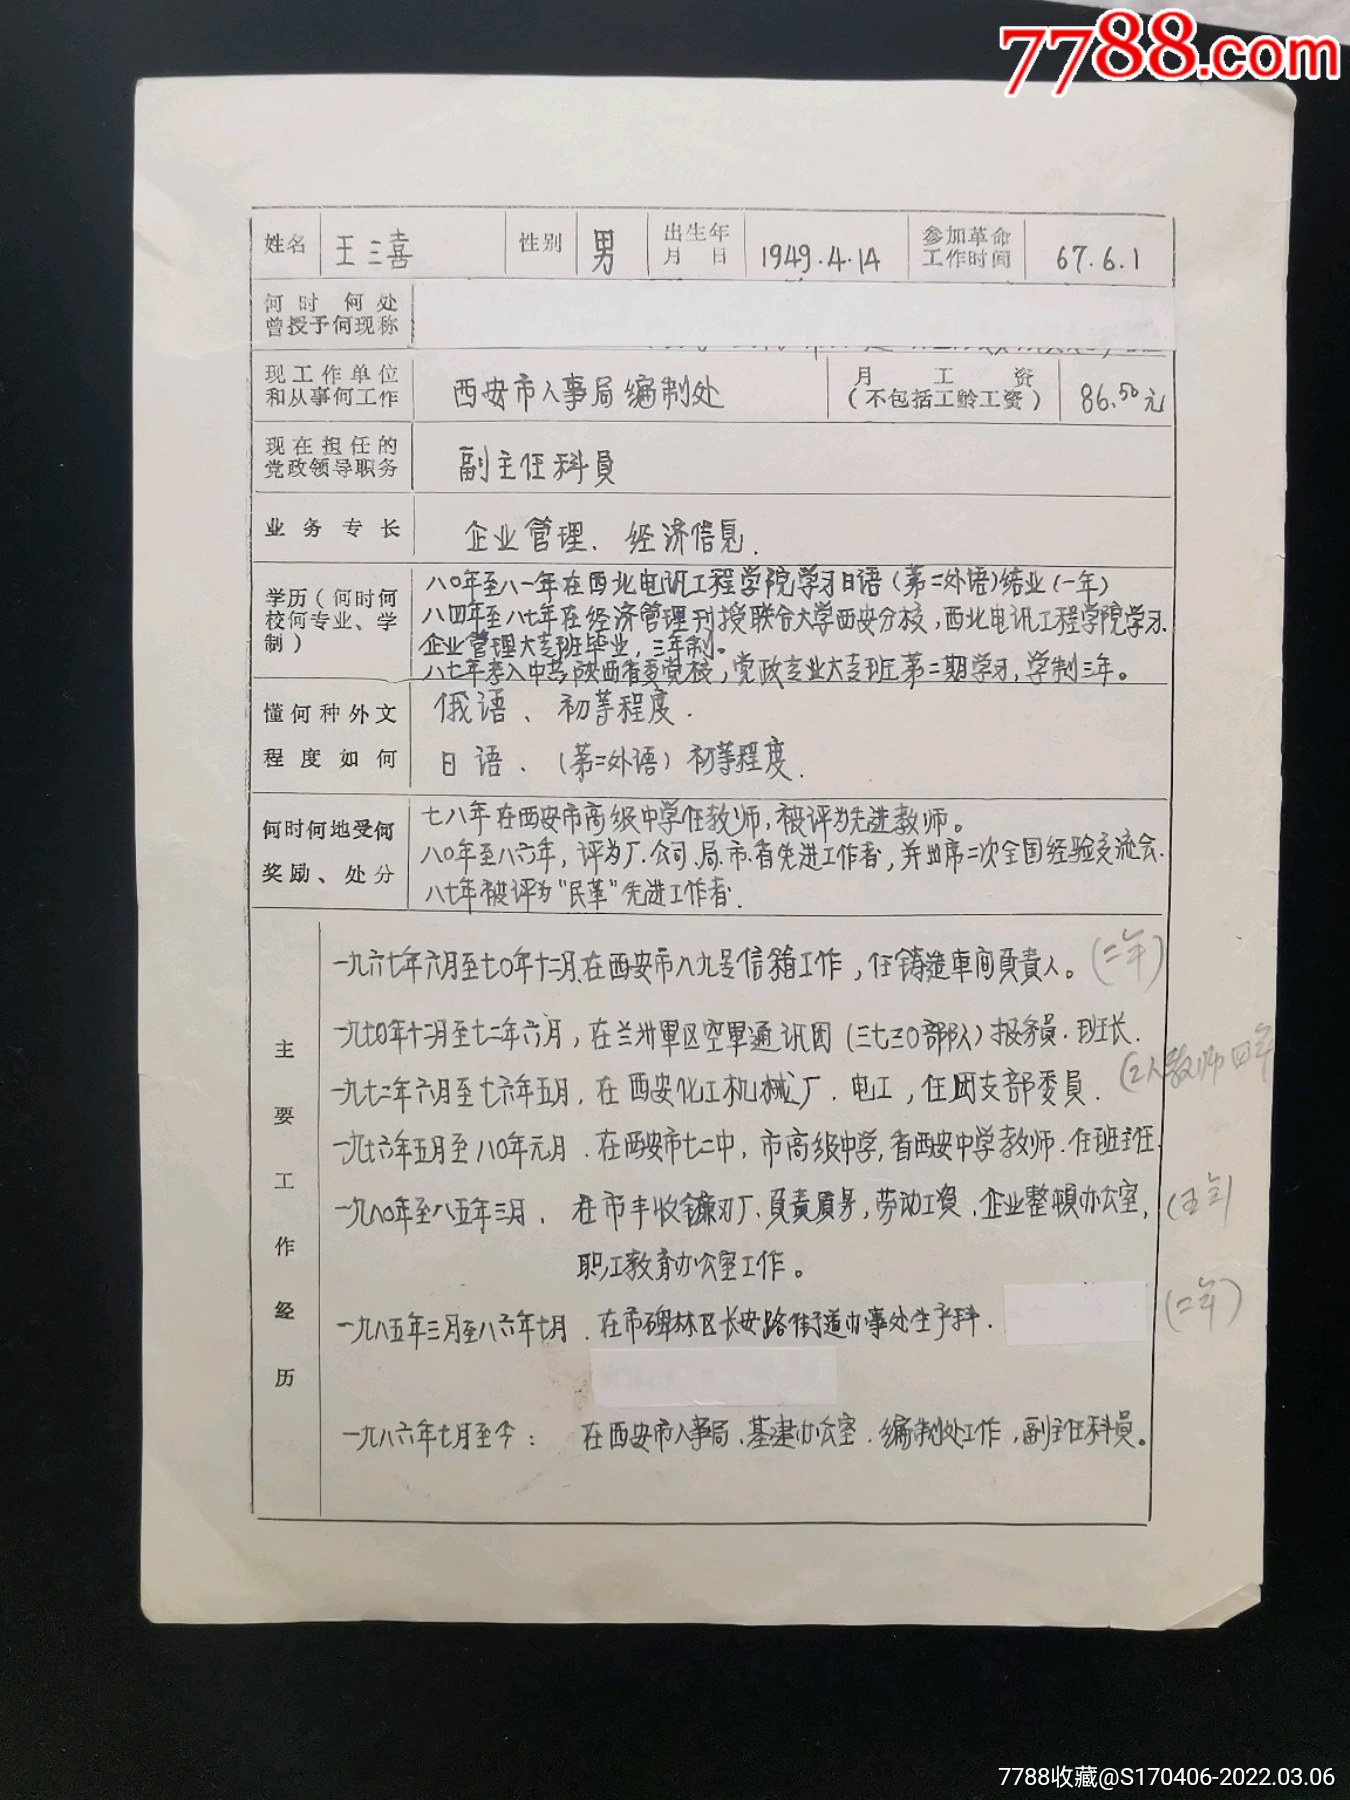 7788.com
姓名 王三喜 性别 男 出生年月日 1949.4.14 参加革命工作时间 67.6.1
何时何处
曾授予何现称
现工作单位和从事何工作 西安市人事局编制处 月工资(不包括工龄工资) 86.50元
现在担任的党政领导职务 副主任科员
业务专长 企业管理、经济信息.
学历(何时何校何专业、学制)
八〇年至八一年在西北电讯工程学院学习日语(第二外语)结业(一年)
八四年至八七年在经济管理刊授联合大学西安分校,西北电讯工程学院学习
企业管理大专班毕业,三年制。
八七年考入中共陕西省委党校,党政专业大专班第二期学习,学制三年。
懂何种外文程度如何
俄语、初等程度.
日语、(第二外语)初等程度.
何时何地受何奖励、处分
七八年在西安市高级中学任教师,被评为先进教师。
八〇年至八六年,评为厂.公司.局.市.省先进工作者,并出席二次全国经验交流会.
八七年被评为“民革”先进工作者.
主要工作经历
一九六七年六月至七〇年十二月在西安市八九号信箱工作,任铸造車间負責人。(二年)
一九七〇年十二月至七二年六月,在兰州軍区空軍通讯团(三七三〇部队)报务員.班长.
一九七二年六月至七六年五月,在西安化工机械厂.电工,任团支部委員. 教师四年
一九七六年五月至八〇年元月.在西安市七二中,市高级中学,省西安中学教师.任班主任.
一九八〇年至八五年三月、在市丰收镰刀厂.負責質量,劳动工資.企业整頓办公室, (五年)
职工教育办公室工作。
一九八五年三月至八六年七月.在市碑林区长安路街道办事处生产科. (二年)
一九八六年七月至今: 在西安市人事局、基建办公室.编制处工作,副主任科員。
7788收藏@S170406-2022.03.06